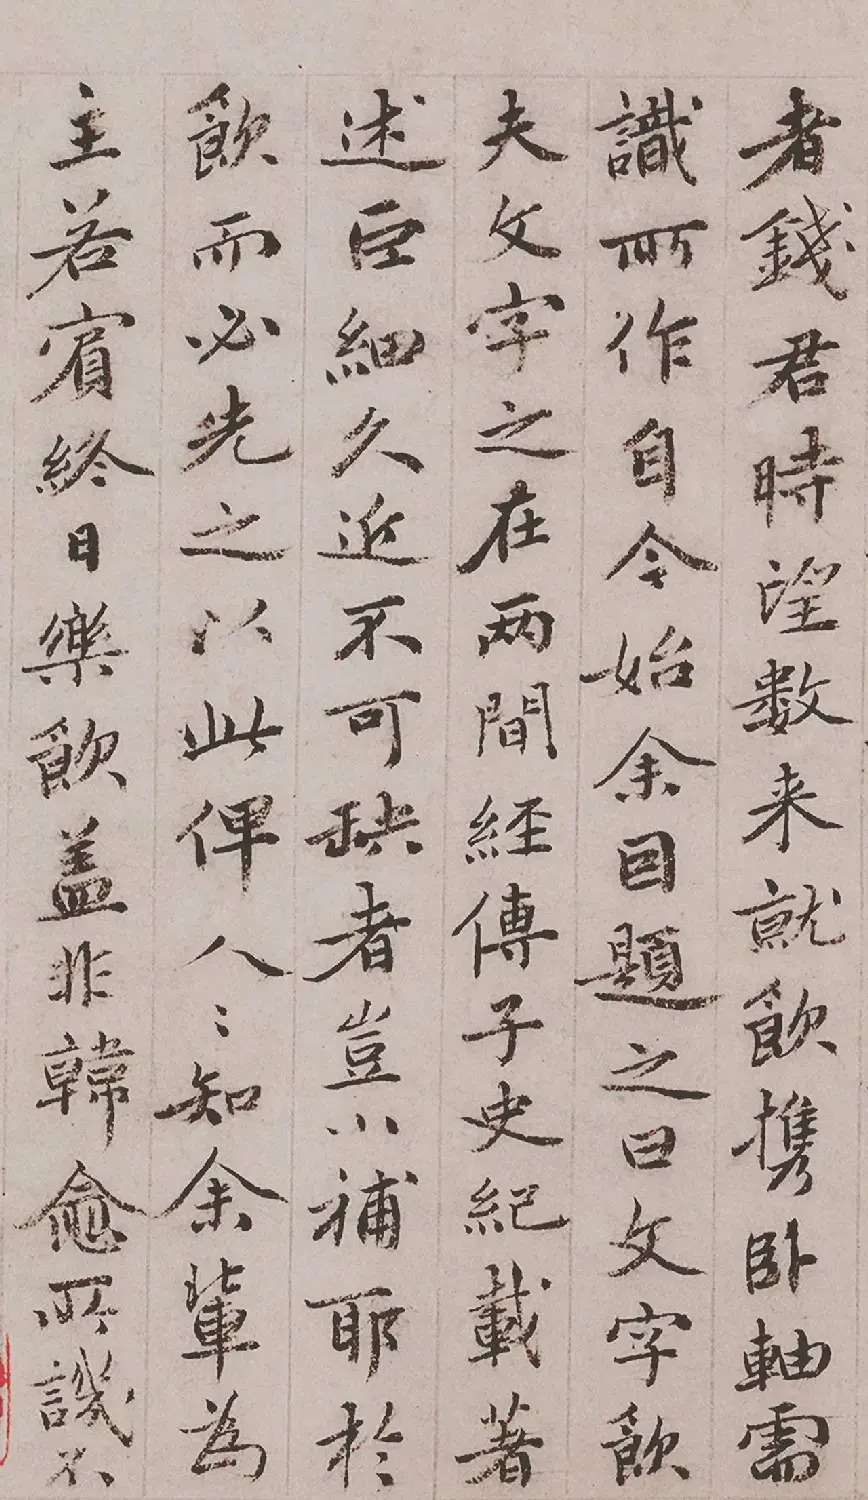 者錢君時望數来就飲携卧軸需
識所作自今始余因題之曰文字飲
夫文字之在兩間經傳子史紀載著
述巨細久近不可缺者豈小補耶於
飲而必先之以此俾人〻知余輩為
主若賔終日樂飲盖非韓愈所譏不